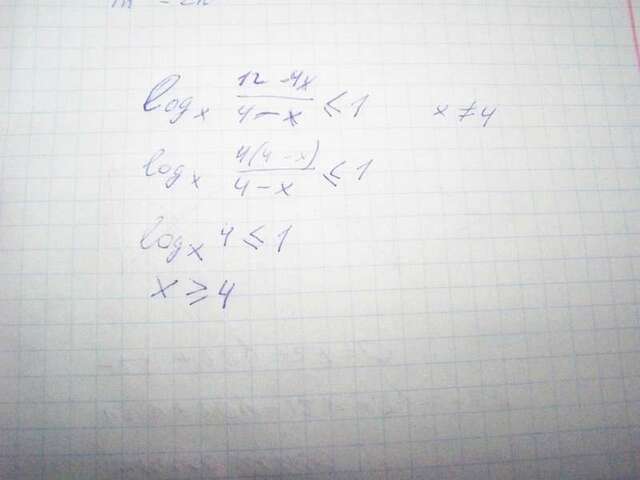 log_x (12 - 4x)/(4 - x) ≤ 1 x ≠ 4
log_x 4(4 - x)/(4 - x) ≤ 1
log_x 4 ≤ 1
x ≥ 4